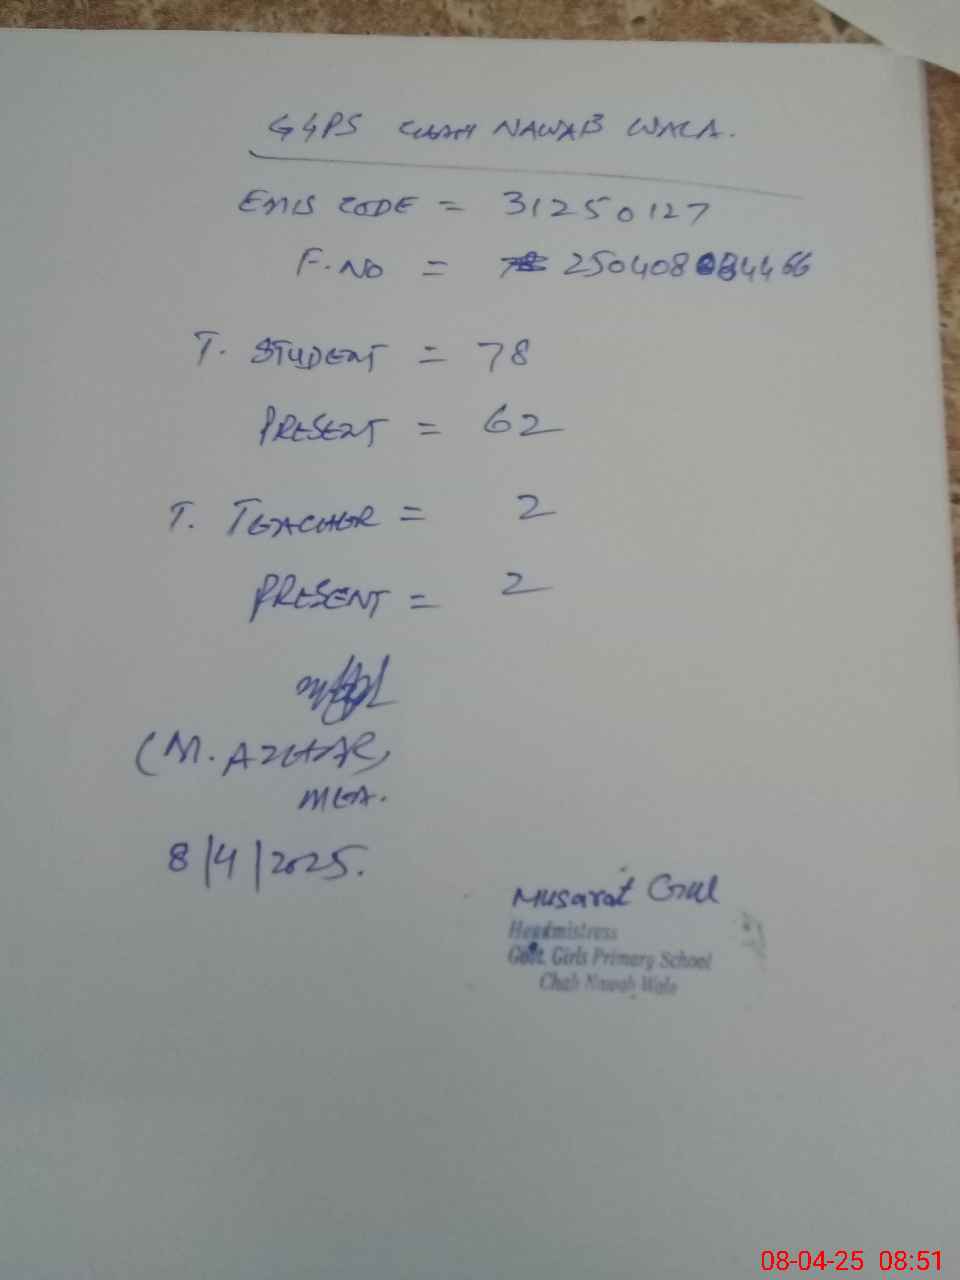 GGPS CHAH NAWAB WALA.
EMIS CODE = 31250127
F.NO = 250408084466
T. STUDENT = 78
PRESENT = 62
T. TEACHER = 2
PRESENT = 2
(M. AZHAR)
MEA.
8/4/2025.
Musarat Gul
Headmistress
Govt. Girls Primary School
Chah Nawab Wala
08-04-25 08:51